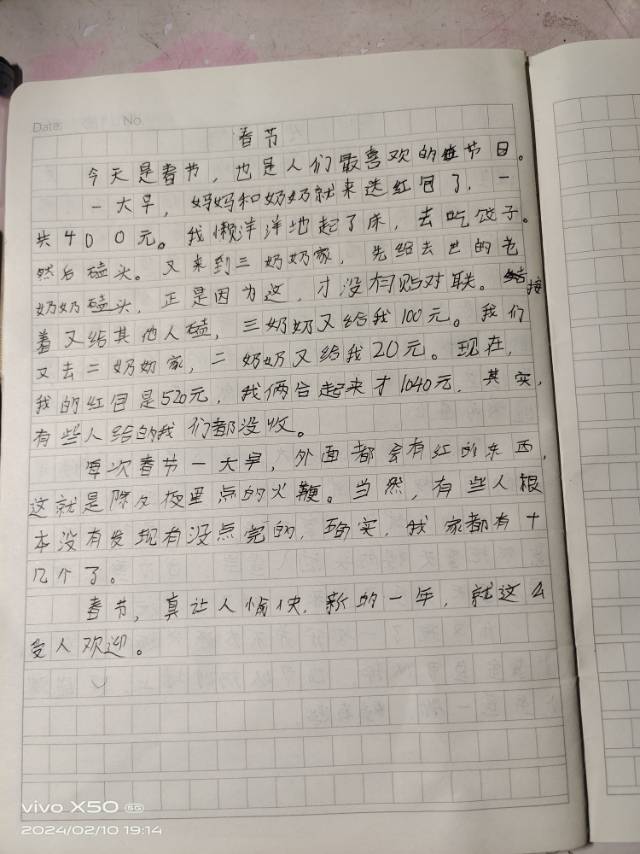 Date: No.
春节
今天是春节，也是人们最喜欢的节日。
一大早，妈妈和奶奶就来送红包了，一
共400元。我懒洋洋地起了床，去吃饺子。
然后磕头。又来到三奶奶家，先给去世的老
奶奶磕头，正是因为这，才没有贴对联。接
着又给其他人磕，三奶奶又给我100元。我们
又去二奶奶家，二奶奶又给我20元。现在，
我的红包是520元，我俩合起来才1040元，其实，
有些人给的我们都没收。
每次春节一大早，外面都会有红的东西，
这就是除夕夜里点的火鞭。当然，有些人根
本没有发现有没点完的，确实，我家都有十
几个了。
春节，真让人愉快，新的一年，就这么
受人欢迎。
vivo X50 5G
2024/02/10 19:14